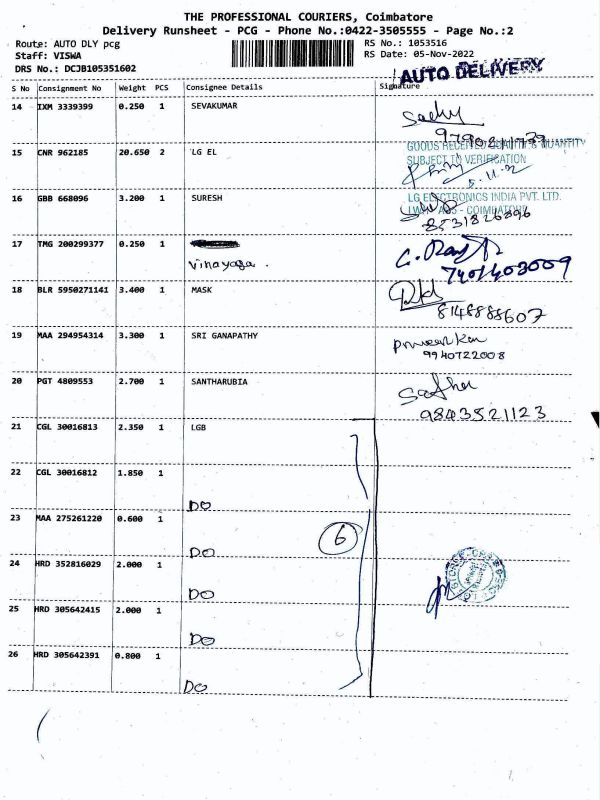 THE PROFESSIONAL COURIERS, Coimbatore
Delivery Runsheet - PCG - Phone No.:0422-3505555 - Page No.:2
Route: AUTO DLY pcg RS No.: 1053516
Staff: VISWA RS Date: 05-Nov-2022
DRS No.: DCJB105351602
AUTO DELIVERY
S No Consignment No Weight PCS Consignee Details Signature
14 IXM 3339399 0.250 1 SEVAKUMAR
15 CNR 962185 20.650 2 LG EL
SUBJECT TO VERIFICATION
5.11.22
16 GBB 668096 3.200 1 SURESH
LG ELECTRONICS INDIA PVT. LTD.
8531820896
17 TMG 200299377 0.250 1
Vinayaga .
7401403009
18 BLR 5950271141 3.400 1 MASK
8148888607
19 MAA 294954314 3.300 1 SRI GANAPATHY
9940722008
20 PGT 4809553 2.700 1 SANTHARUBIA
9843521123
21 CGL 30016813 2.350 1 LGB
22 CGL 30016812 1.850 1
DO
23 MAA 275261220 0.600 1
6
DO
24 HRD 352816029 2.000 1
DO
25 HRD 305642415 2.000 1
DO
26 HRD 305642391 0.800 1
DO